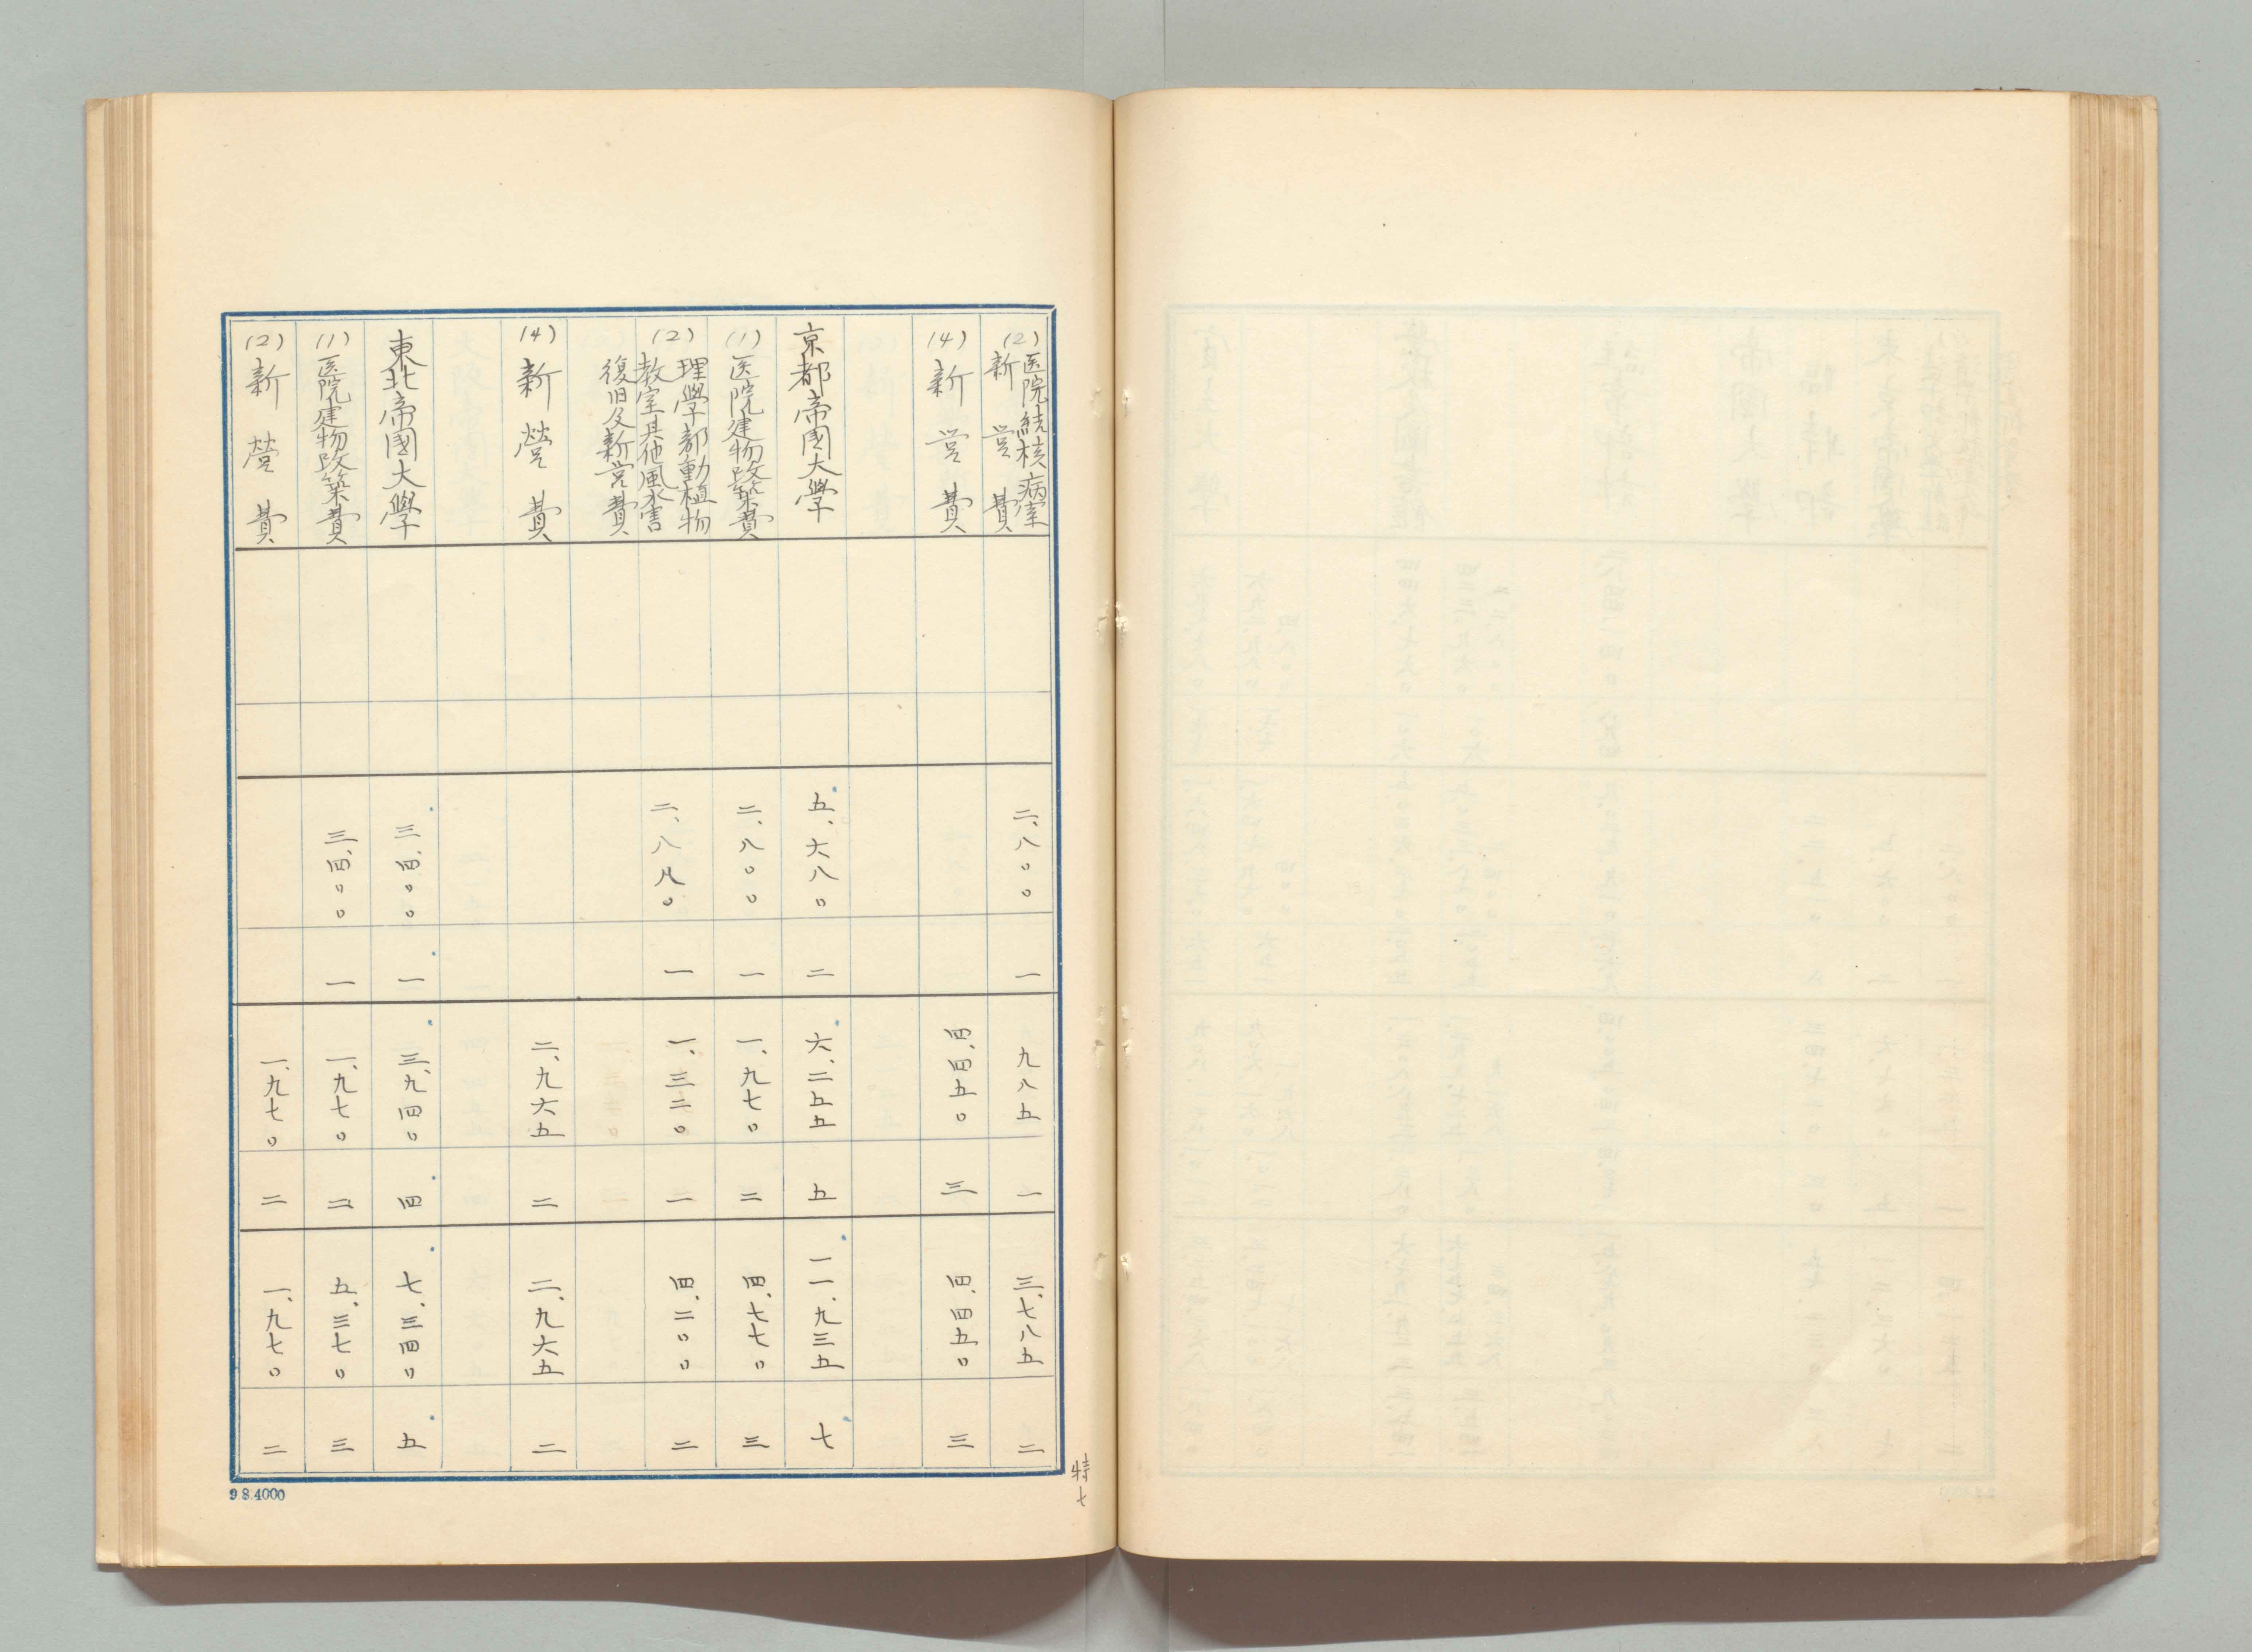 (2)医院結核病室新営費 二、八〇〇 一 九八五 一 三、七八五 二
(4)新営費 四、四五〇 三 四、四五〇 三
京都帝國大學 五、六八〇 二 六、二五五 五 一一、九三五 七
(1)医院建物改築費 二、八〇〇 一 一、九七〇 二 四、七七〇 三
(2)理學部動植物教室其他風水害復旧及新営費 二、八八〇 一 一、三二〇 一 四、二〇〇 二
(4)新営費 二、九六五 二 二、九六五 二
東北帝國大學 三、四〇〇 一 三、九四〇 四 七、三四〇 五
(1)医院建物改築費 三、四〇〇 一 一、九七〇 二 五、三七〇 三
(2)新営費 一、九七〇 二 一、九七〇 二
特七
9.8.4000